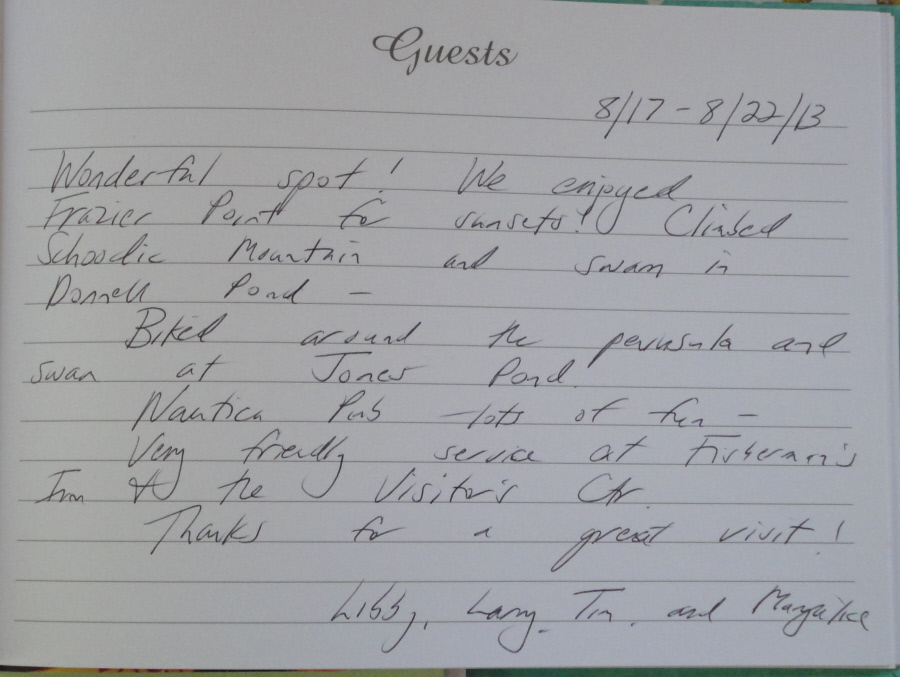 Guests
8/17 - 8/22/13
Wonderful spot! We enjoyed
Frazier Point for sunsets! Climbed
Schoodic Mountain and swam in
Donnell Pond -
Biked around the peninsula and
swam at Jones Pond.
Nautica Pub - lots of fun -
Very friendly service at Fisherman's
Inn & the Visitor's Ctr.
Thanks for a great visit!
Libby, Larry, Tim, and Maryalice